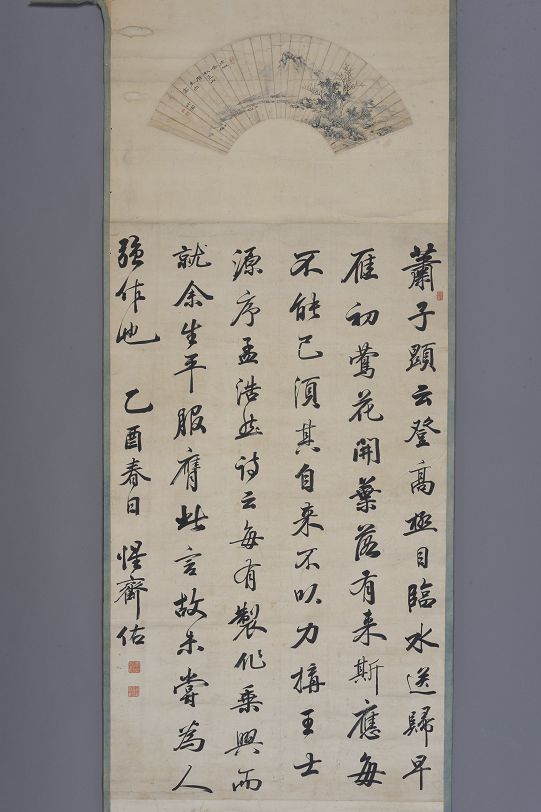 蕭子顯云登高極目臨水送歸早
雁初鶯花開葉落有來斯應每
不能已須其自来不以力搆王士
源序孟浩然诗云每有製作乘興而
就余生平服膺此言故未嘗為人
強作也 乙酉春日 惺齋佑